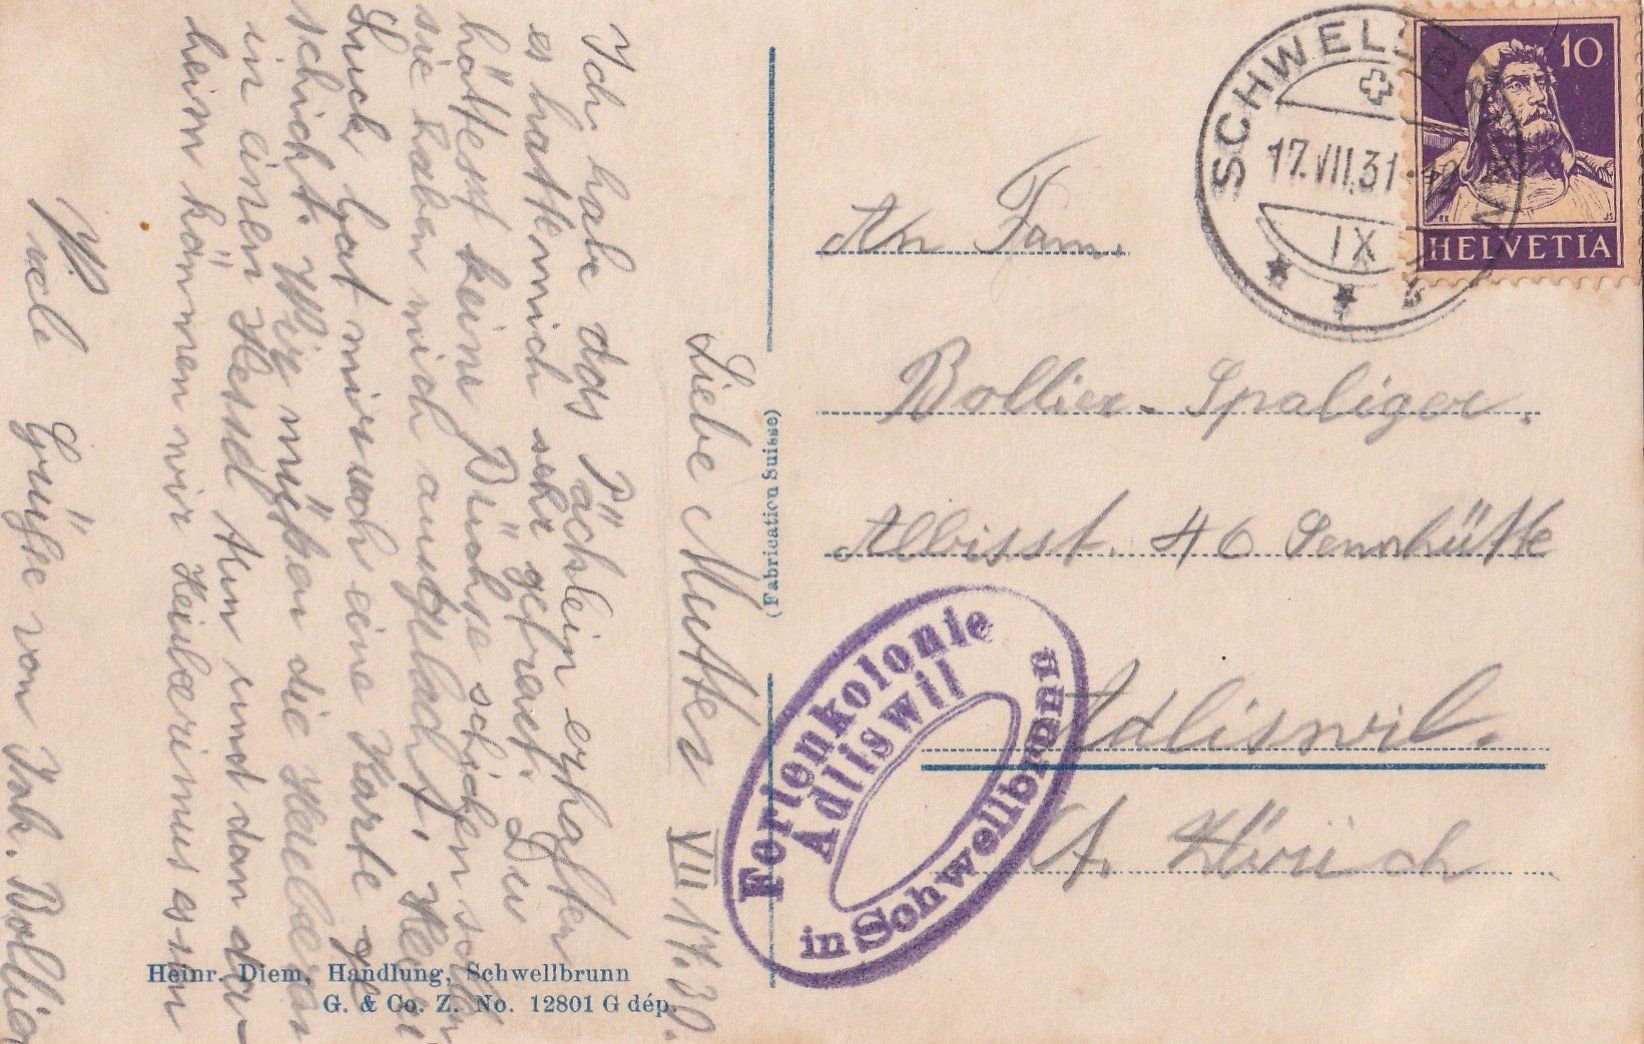 Liebe Mutter VII 17. 30.
Ich habe das Päcklein erhalten
es hat mich sehr gefreut. Du
hättest keine Büchse schicken sollen
sie haben mich ausgelacht.
Luck hat mir auch eine Karte ge
schickt. Wir müßen die Heuberen
in einen Kessel tun und dan da-
heim können wir Heiberimus essen
Viele Grüße von Jak. Bollier
Heinr. Diem, Handlung, Schwellbrunn
G. & Co. Z. No. 12801 G dép.
(Fabrication Suisse)
SCHWELLBRUNN
17.VII.31
IX
10
HELVETIA
An Fam.
Bollier-Spaliger.
Albisst. 46 Sennhütte
Adliswil.
Kt. Zürich
Ferienkolonie
Adliswil
in Schwellbrunn